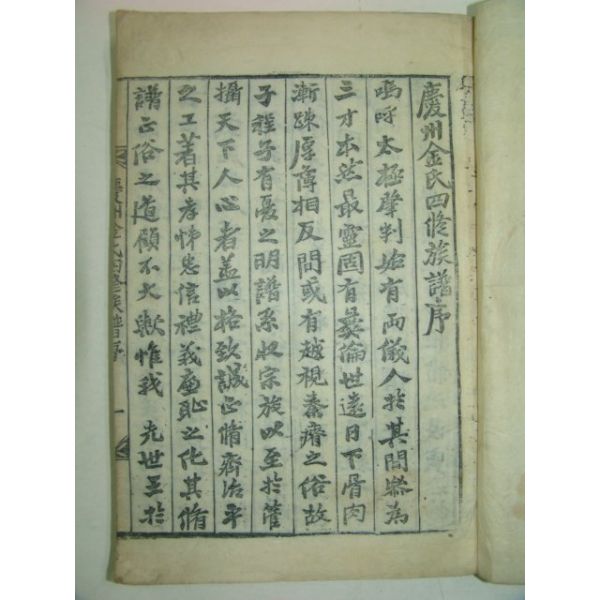 慶州金氏四修族譜序
嗚呼太極肇判始有兩儀人於其間叅為
三才本然最靈固有彛倫世遠日下骨肉
漸踈厚薄相反間或有越視秦瘠之俗故
子程子有憂之明譜系収宗族以至於管
攝天下人心者盖以格致誠正脩齊治平
之工著其孝悌忠信禮義廉恥之化其脩
譜正俗之道顧不大歟惟我 先世至於
慶州金氏四修族譜序 一